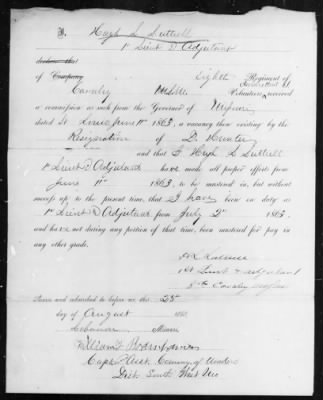 I, Hugh L Luttrell
1st Lieut & Adjutant
of Company Eighth Regiment of
Cavalry MSM Volunteers, received
a commission as such from the Governor of Missouri
dated St Louis June 1st 1863, a vacancy then existing by the
Resignation of D. Hunter
and that I Hugh L Luttrell
1st Lieut & Adjutant have made all proper efforts from
June 1st 1863, to be mustered in, but without
success up to the present time, that I have been on duty as
1st Lieut & Adjutant from July 2d 1863.
and have not during any portion of that time, been mustered for pay in
any other grade.
1st Lieut & Adjutant
8th Cavalry
Sworn and subscribed to before me this 25
day of August 1863
Lebanon Missouri
William
Capt & Asst Commy of Musters
Dist South West Mo